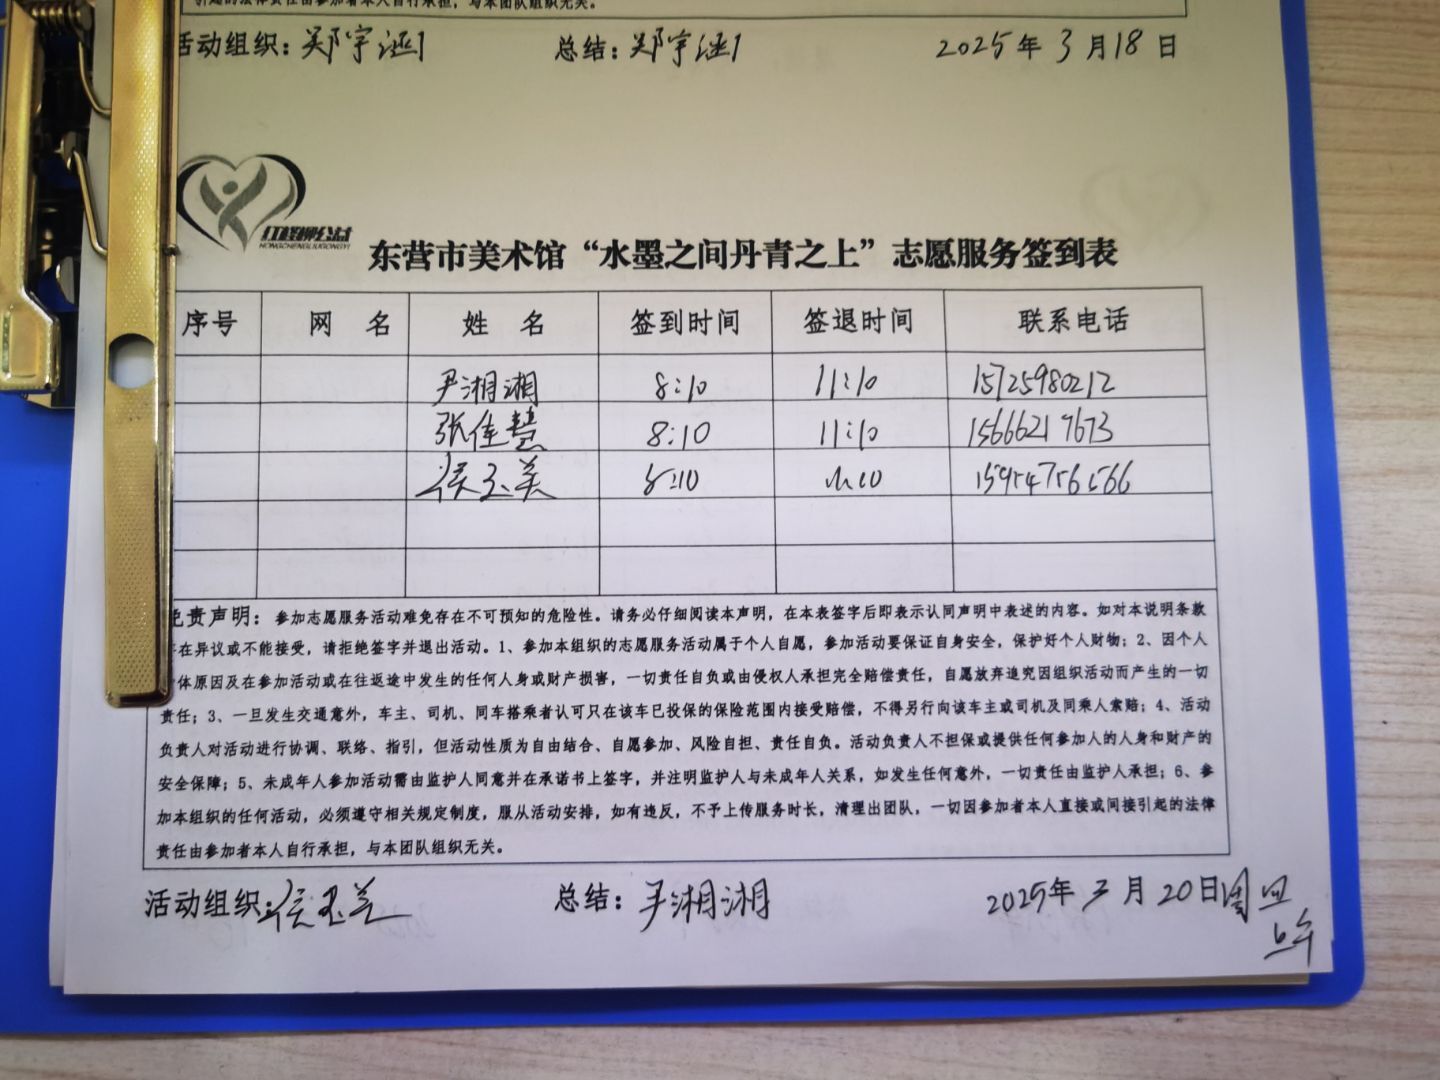 引起的法律责任由参加者本人自行承担，与本团队组织无关。
活动组织：郑宇涵 总结：郑宇涵 2025年3月18日
红柽柳公益
HONGCHENGLIUGONGYI
东营市美术馆“水墨之间丹青之上”志愿服务签到表
序号 网 名 姓 名 签到时间 签退时间 联系电话
尹湘湘 8:10 11:10 15725980212
张佳慧 8:10 11:10 15666217673
侯玉美 8:10 11:10 15954756566
免责声明：参加志愿服务活动难免存在不可预知的危险性。请务必仔细阅读本声明，在本表签字后即表示认同声明中表述的内容。如对本说明条款
存在异议或不能接受，请拒绝签字并退出活动。1、参加本组织的志愿服务活动属于个人自愿，参加活动要保证自身安全，保护好个人财物；2、因个人
身体原因及在参加活动或在往返途中发生的任何人身或财产损害，一切责任自负或由侵权人承担完全赔偿责任，自愿放弃追究因组织活动而产生的一切
责任；3、一旦发生交通意外，车主、司机、同车搭乘者认可只在该车已投保的保险范围内接受赔偿，不得另行向该车主或司机及同乘人索赔；4、活动
负责人对活动进行协调、联络、指引，但活动性质为自由结合、自愿参加、风险自担、责任自负。活动负责人不担保或提供任何参加人的人身和财产的
安全保障；5、未成年人参加活动需由监护人同意并在承诺书上签字，并注明监护人与未成年人关系，如发生任何意外，一切责任由监护人承担；6、参
加本组织的任何活动，必须遵守相关规定制度，服从活动安排，如有违反，不予上传服务时长，清理出团队，一切因参加者本人直接或间接引起的法律
责任由参加者本人自行承担，与本团队组织无关。
活动组织：侯玉美 总结：尹湘湘 2025年3月20日周四
上午